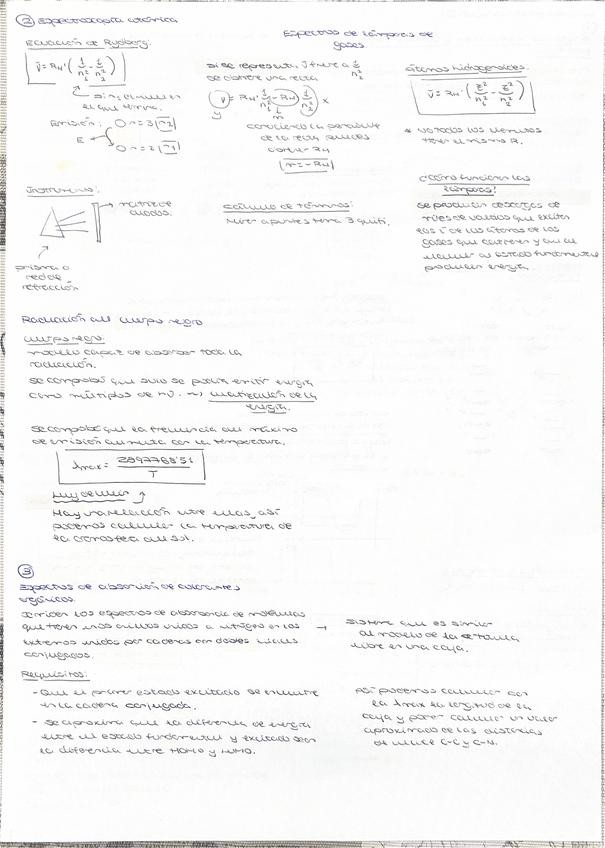 ② Espectroscopía atómica
Ecuación de Rydberg:
ν̄ = R_H · (1/n₁² - 1/n₂²)
Emisión: O n=3 (n₂)
E
O n=2 (n₁)
Instrumento:
matriz de
diodos.
prisma o
red de
refracción
Espectros de lámparas de
gases.
si se representa ν̄ frente a 1/n₂²
se obtiene una recta
ν̄ = R_H · 1/n₁² - R_H (1/n₂²) x
y
conociendo la pendiente
de la recta puedes
obtener R_H
m = -R_H
Cálculo de términos:
Mirar apuntes tema 3 quifi.
Átomos hidrogenoides.
ν̄ = R_H · (Z²/n₁² - Z²/n₂²)
* no todos los elementos
tienen el mismo R.
¿Cómo funcionan las
lámparas?
Se producen descargas de
miles de voltios que excitan
los e⁻ de los átomos de los
gases que contienen y así al
al estado fundamental
producen energía.
Radiación del cuerpo negro
Cuerpo negro:
modelo capaz de absorber toda la
radiación.
Se comprobó que solo se podía emitir energía
como múltiplos de hν. ⇝ cuantización de la
energía.
Se comprobó que la frecuencia del máximo
de emisión aumenta con la temperatura.
λmax = 2897768'51 / T
Ley de Wien
Hay una relación entre ellas, así
podemos calcular la temperatura de
la cromosfera del sol.
③
Espectros de absorción de colorantes
orgánicos.
los espectros de absorbancia de moléculas
que tienen unos anillos unidos a nitrógeno en los
extremos unidos por cadenas con dobles enlaces
conjugados.
→ sistema que es similar
al modelo de la partícula
libre en una caja.
Requisitos:
- Que el primer estado excitado se encuentre
en la cadena conjugada.
- Se aproxima que la diferencia de energía
entre el estado fundamental y excitado sea
la diferencia entre HOMO y LUMO.
Así podemos calcular con
la λmax la longitud de la
caja y poder calcular un valor
aproximado de las distancias
de enlace C-C y C-N.